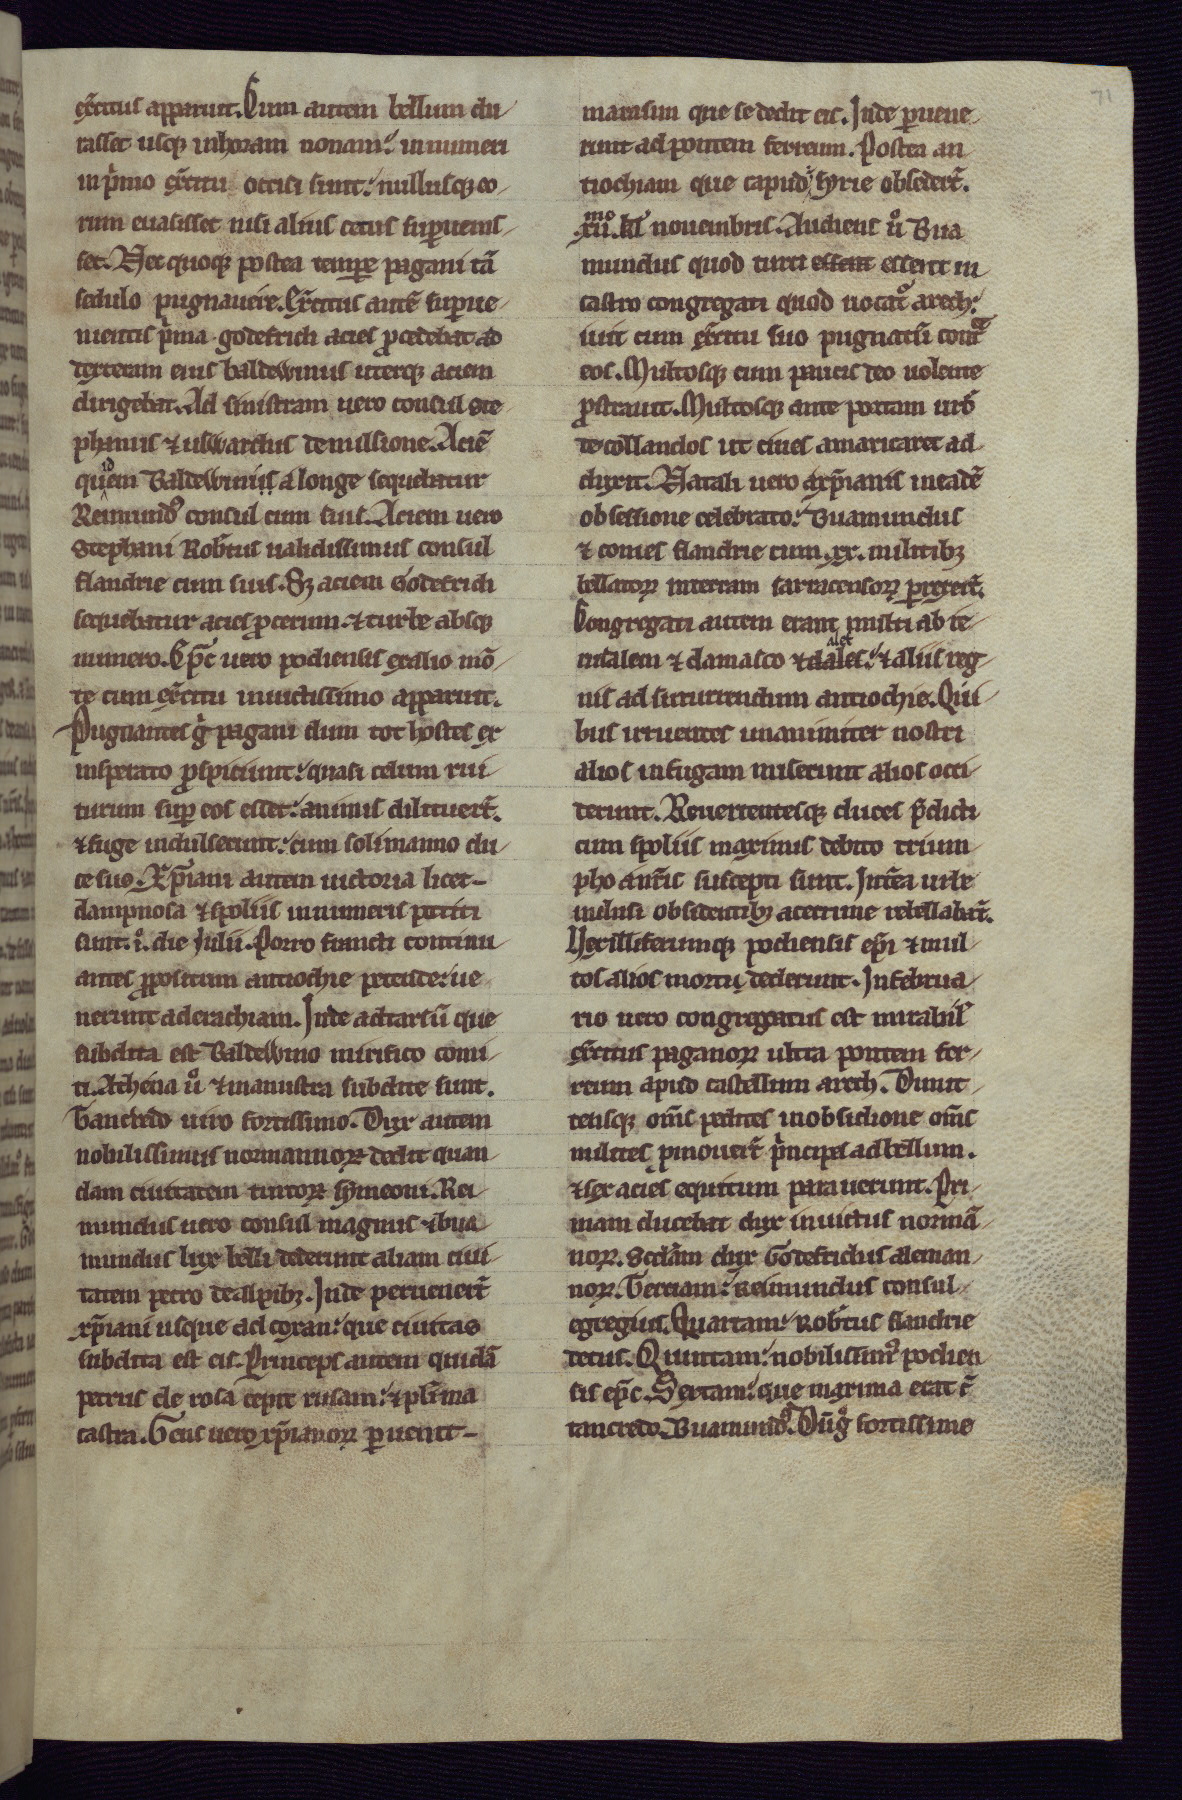 71
ex̄citus apparuit. Cum autem bellum du-
rasset usq; in horam nonam: innumeri
in p̄mo ex̄citu occisi sunt: nullusq; eo-
rum euasisset nisi alius cetus supuenis-
set. Nec quoq; postea tempore pagani tā
sedulo pugnauere. Ex̄citus autē supue-
nientis p̄ma godefridi acies p̄cedebat ad
dexteram eius baldewinus uterq; aciem
dirigebat. Ad sinistram uero consul ste-
phanus ⁊ uiswardus de mulsione. Aciē
quidem Baldewini a longe sequebatur
Reimund⁹ consul cum suis. Aciem uero
Stephani Rob̄tus ualidissimus consul
flandrie cum suis. Sꝫ aciem Godefridi
sequebatur acies p̄cerum ⁊ turbe absq;
numero. Ep̄c uero podiensis ex alio mō-
te cum ex̄citu inuictissimo apparuit.
Pugnantes g̊ pagani dum tot hostes ex
insperato p̄spiciunt: quasi celum rui-
turum sup eos esset: animis dilituer̄t.
⁊ fuge indulserunt: cum solimanno du-
ce suo. Xp̄iani autem uictoria licet-
dampnosa ⁊ spoliis innumeris potiti
sunt. i⁰. die iulii. Porro sancti continu-
antes p̄positum antiochie petende: ue-
nerunt ad erachiam. Inde ad tarsū que
subdita est Baldewino mirifico comi-
ti. Athena ů ⁊ manustra subdite sunt.
Tancredo uiro fortissimo. Dux autem
nobilissimus normannoꝝ dedit quan-
dam ciuitatem turcoꝝ symeoni. Rei-
mundus uero consul magnus ⁊ bua-
mundus lux belli dederunt aliam ciui-
tatem petro de alpibꝫ. Inde peruener̄t
xp̄iani usque ad coxan: que ciuitas
subdita est eis. Princeps autem quidā
petrus de rosa cepit rusam: ⁊ pl̄ima
castra. Cetus uero xp̄ianoꝝ puenit-
marasim que se dedit eis. Inde puene-
runt ad pontem ferreum. Postea an-
tiochiam que capud syrie obseder̄t.
xii.mo kl̄ nouembris. Audiens ů Bua-
mundus quod turci essent essent in
castro congregati quod uocat᷑ arech:
iuit cum ex̄citu suo pugnatū contᵃ
eos. Multosq; cum paucis deo uolente
p̄strauit. Multosq; ante portam urb̄
decollandos ut ciues amaricaret ad-
duxit. Natali uero a xp̄ianis in eadē
obsessione celebrato: Buamundus
⁊ comes flandrie cum .xx. militibꝫ
bellatoꝝ in terram sarracenoꝝ prexer̄t.
Congregati autem erant multi ab ie-
rusalem ⁊ damasco ⁊ d alef: ⁊ aliis reg-
alef
nis ad succurrendum antiochie. Qui-
bus irruentes unanimiter nostri
alios in fugam miserunt alios occi-
derunt. Reuertentesq; duces p̄dicti
cum spoliis maximis debito trium-
pho a nr̄is suscepti sunt. Int̄ea urbe
inclusi obsidentibꝫ acerrime rebellabāt.
Vexilliferumq; podiensis ep̄i ⁊ mul-
tos alios morti dederunt. In februa-
rio uero congregatus est mirabil᷑
ex̄citus paganoꝝ ultra pontem fer-
reum apud castellum arech. Dimit-
tensq; om̄s pedites in obsidione om̄s
milites pmouer̄t p̄ncipes ad bellum.
⁊ sex acies equitum parauerunt. Pri-
mam ducebat dux inuictus normā-
noꝝ. Secdam dux Godefridus aleman-
noꝝ. Terciam: Reimundus consul
egregius. Quartam: Rob̄tus flandrie
decus. Quintam: nobilissim⁹ podien-
sis ep̄c. Sextam: que maxima erat c̄
tancredo. Buamund⁹. Dūg̊ fortissime